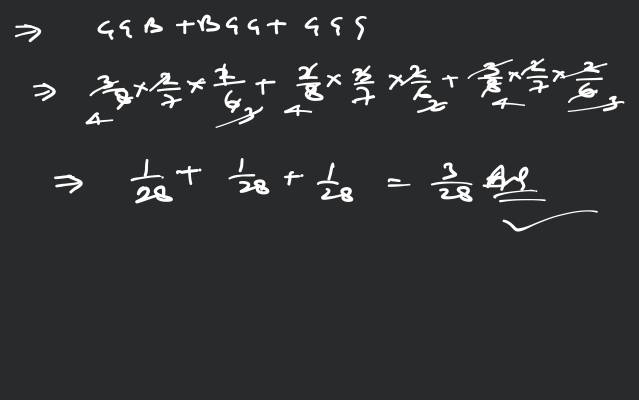 ⇒ GGB + BGG + GGG
⇒ 3/8 × 2/7 × 2/6 + 2/8 × 3/7 × 2/6 + 3/8 × 2/7 × 2/6
⇒ 1/28 + 1/28 + 1/28 = 3/28 Ans